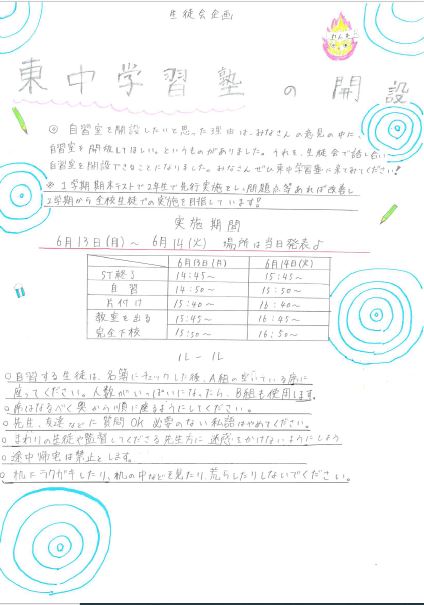 生徒会企画
東中学習塾の開設
◎自習室を開設したいと思った理由は、みなさんの意見の中に、
自習室を開放してほしい。というものがありました。それを、生徒会で話し合い
自習室を開設できることになりました。みなさんぜひ東中学習塾に来てみてください!
※1学期期末テストで2年生で先行実施をし、問題点等あれば改善し
2学期から全校生徒での実施を目指しています!
実施期間
6月13日(月)~6月14(火) 場所は当日発表♪
6月13日(月) 6月14日(火)
ST終了 14:45~ 15:45~
自習 14:50~ 15:50~
片付け 15:40~ 16:40~
教室を出る 15:45~ 16:45~
完全下校 15:50~ 16:50~
ルール
○自習する生徒は、名簿にチェックした後、A組の空いている席に
座ってください。人数がいっぱいになったら、B組も使用します。
○席はなるべく奥から順に座るようにしてください。
○先生、友達などに質問OK 必要のない私語はやめてください。
○まわりの生徒や監督してくださる先生方に迷惑をかけないようにしよう
○途中帰宅は禁止とします。
○机にラクガキしたり、机の中などを見たり、荒らしたりしないでください。